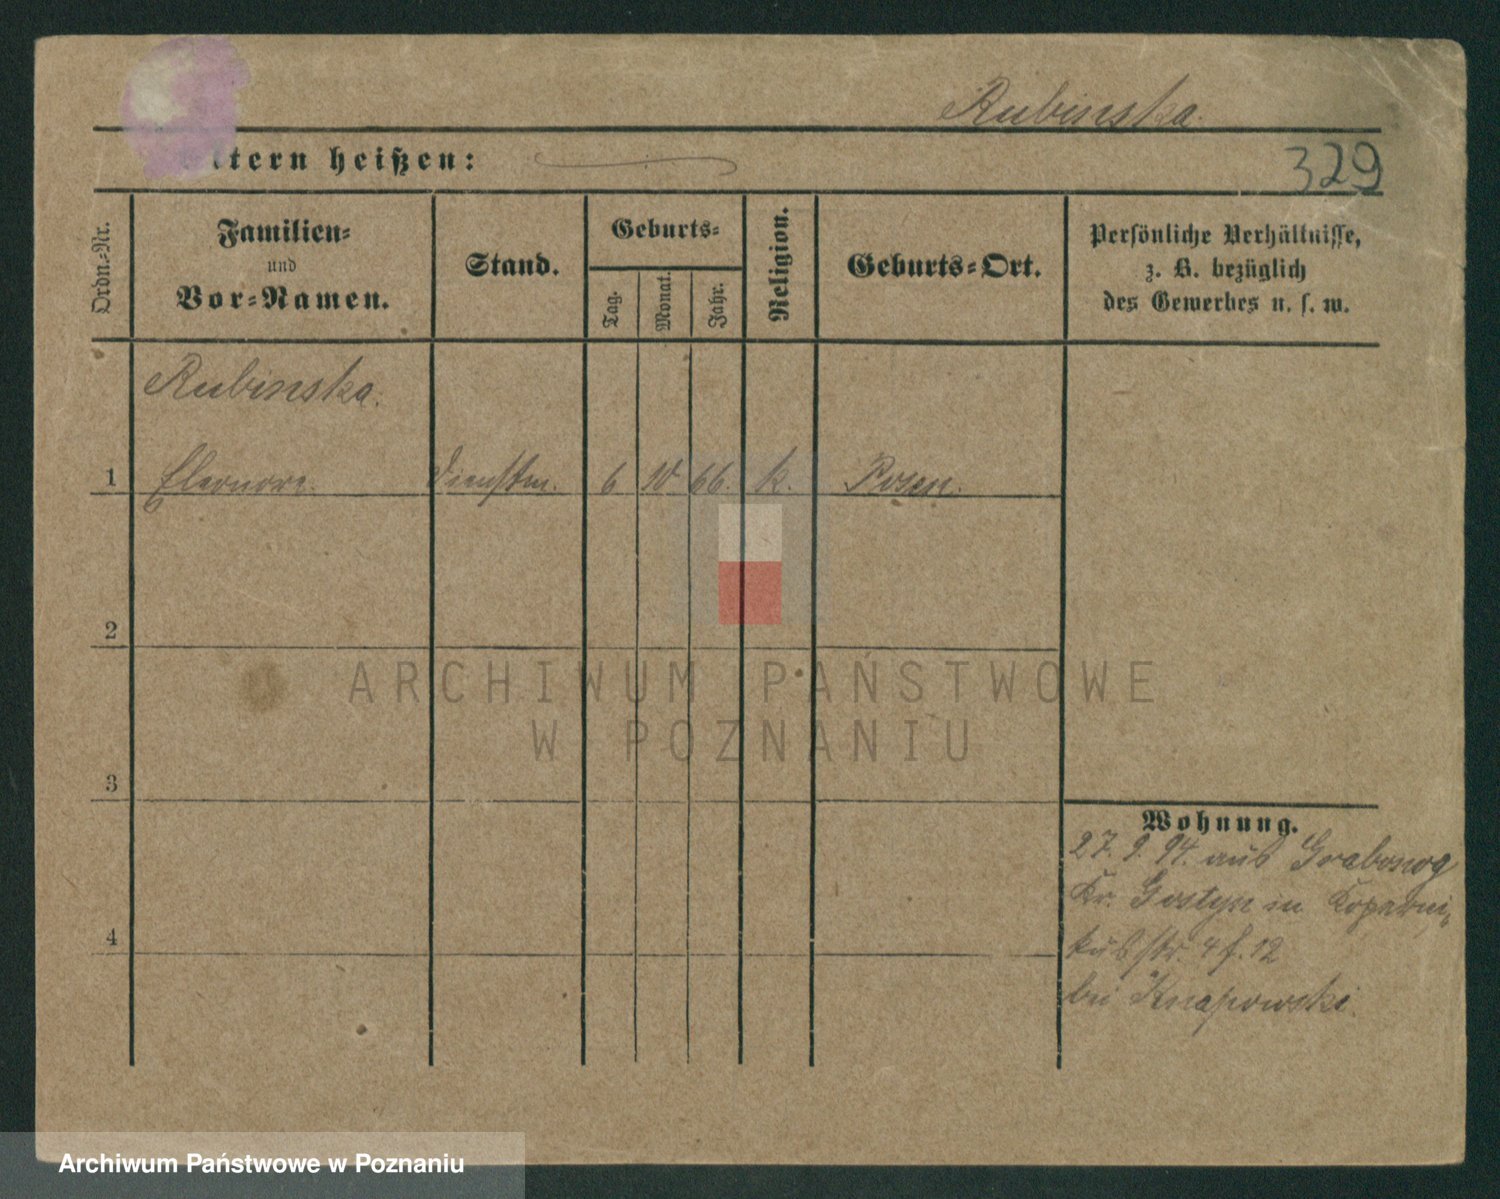 Rubinska.
Eltern heißen:
329
Ordn.-Nr.
Familien-
und
Vor-Namen.
Stand.
Geburts-
Tag.
Monat.
Jahr.
Religion.
Geburts-Ort.
Persönliche Verhältnisse,
z. B. bezüglich
des Gewerbes u. s. w.
Rubinska.
1 Eleonore. Dienstm. 6 10 66. k. Posen.
2
ARCHIWUM PAŃSTWOWE
W POZNANIU
3
Wohnung.
27. 9. 94. aus Grabonog
Kr. Gostyn in Koperni-
kusstr. 4 f. 12
bei Knapowski.
4
Archiwum Państwowe w Poznaniu